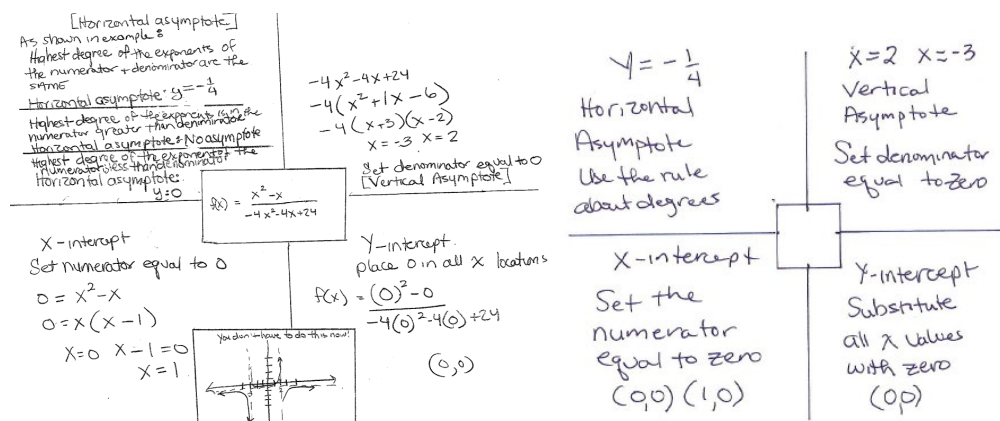 [Horizontal asymptote]
As shown in example:
Highest degree of the exponents of
the numerator + denominator are the
SAME
Horizontal asymptote: y=-1/4
Highest degree of the exponents in the
numerator greater than denominator
Horizontal asymptote: No asymptote
Highest degree of the exponent of the
numerator less than denominator
Horizontal asymptote:
y=0
-4x²-4x+24
-4(x²+1x-6)
-4(x+3)(x-2)
x=-3 x=2
Set denominator equal to 0
[Vertical Asymptote]
f(x) = x²-x / -4x²-4x+24
X-intercept
Set numerator equal to 0
0=x²-x
0=x(x-1)
x=0 x-1=0
x=1
Y-intercept
place 0 in all x locations
f(x) = (0)²-0 / -4(0)²-4(0)+24
(0,0)
you don't have to do this now!
Y=-1/4
Horizontal
Asymptote
Use the rule
about degrees
x=2 x=-3
Vertical
Asymptote
Set denominator
equal to zero
X-intercept
Set the
numerator
equal to zero
(0,0) (1,0)
Y-intercept
Substitute
all x values
with zero
(0,0)